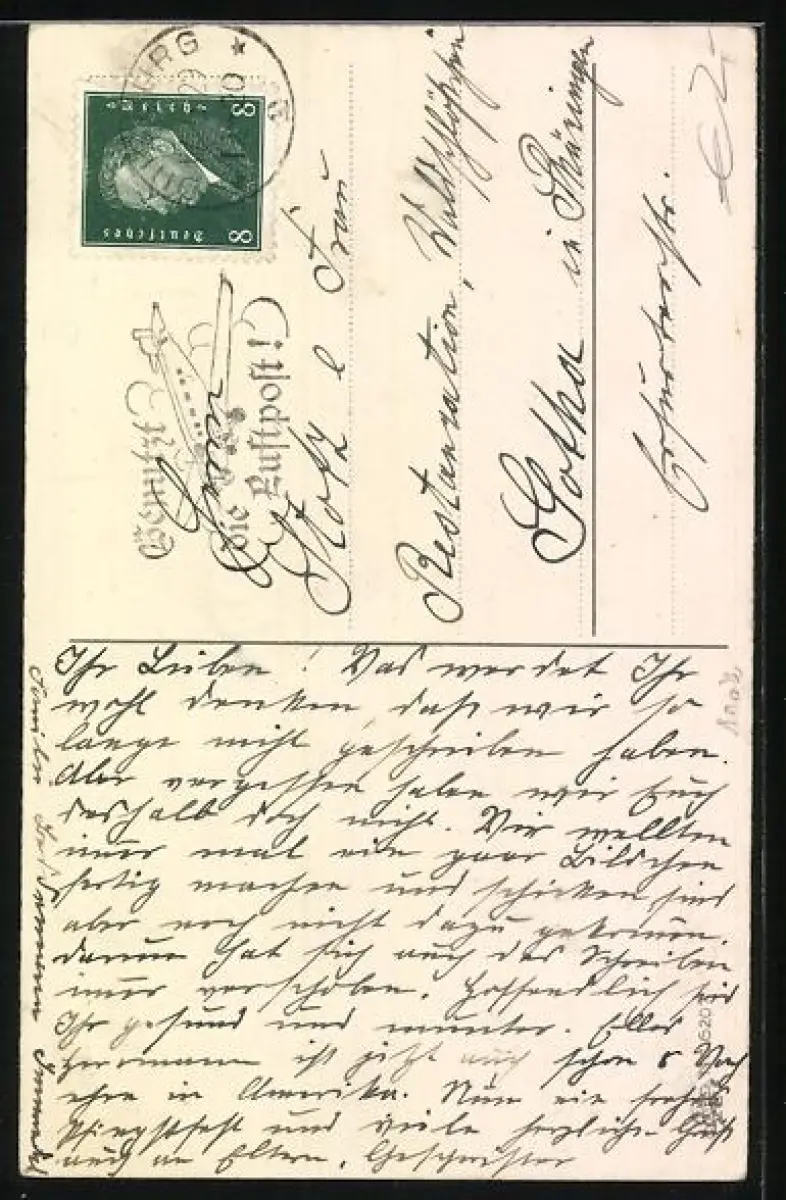 Deutsches Reich
8 8
Benutzt
die Luftpost!
Frau
Stotz
Restauration, Waldschlößchen
Gotha in Thüringen
Erfurterstr.
Ihr Lieben! Was werdet Ihr
wohl denken daß wir so
lange nicht geschrieben haben.
Aber vergessen haben wir Euch
deshalb doch nicht. Wir wollten
immer mal ein paar Bildchen
fertig machen und schicken, sind
aber noch nicht dazu gekommen.
darum hat sich auch das Schreiben
immer verschoben. Hoffendlich seid
Ihr gesund und munter.
Herrmann ist jetzt auch schon 8
in Amerika. Nun ein frohes
Pfingstfest und viele herzliche Grüße
auch an Eltern, Geschwister
Familie